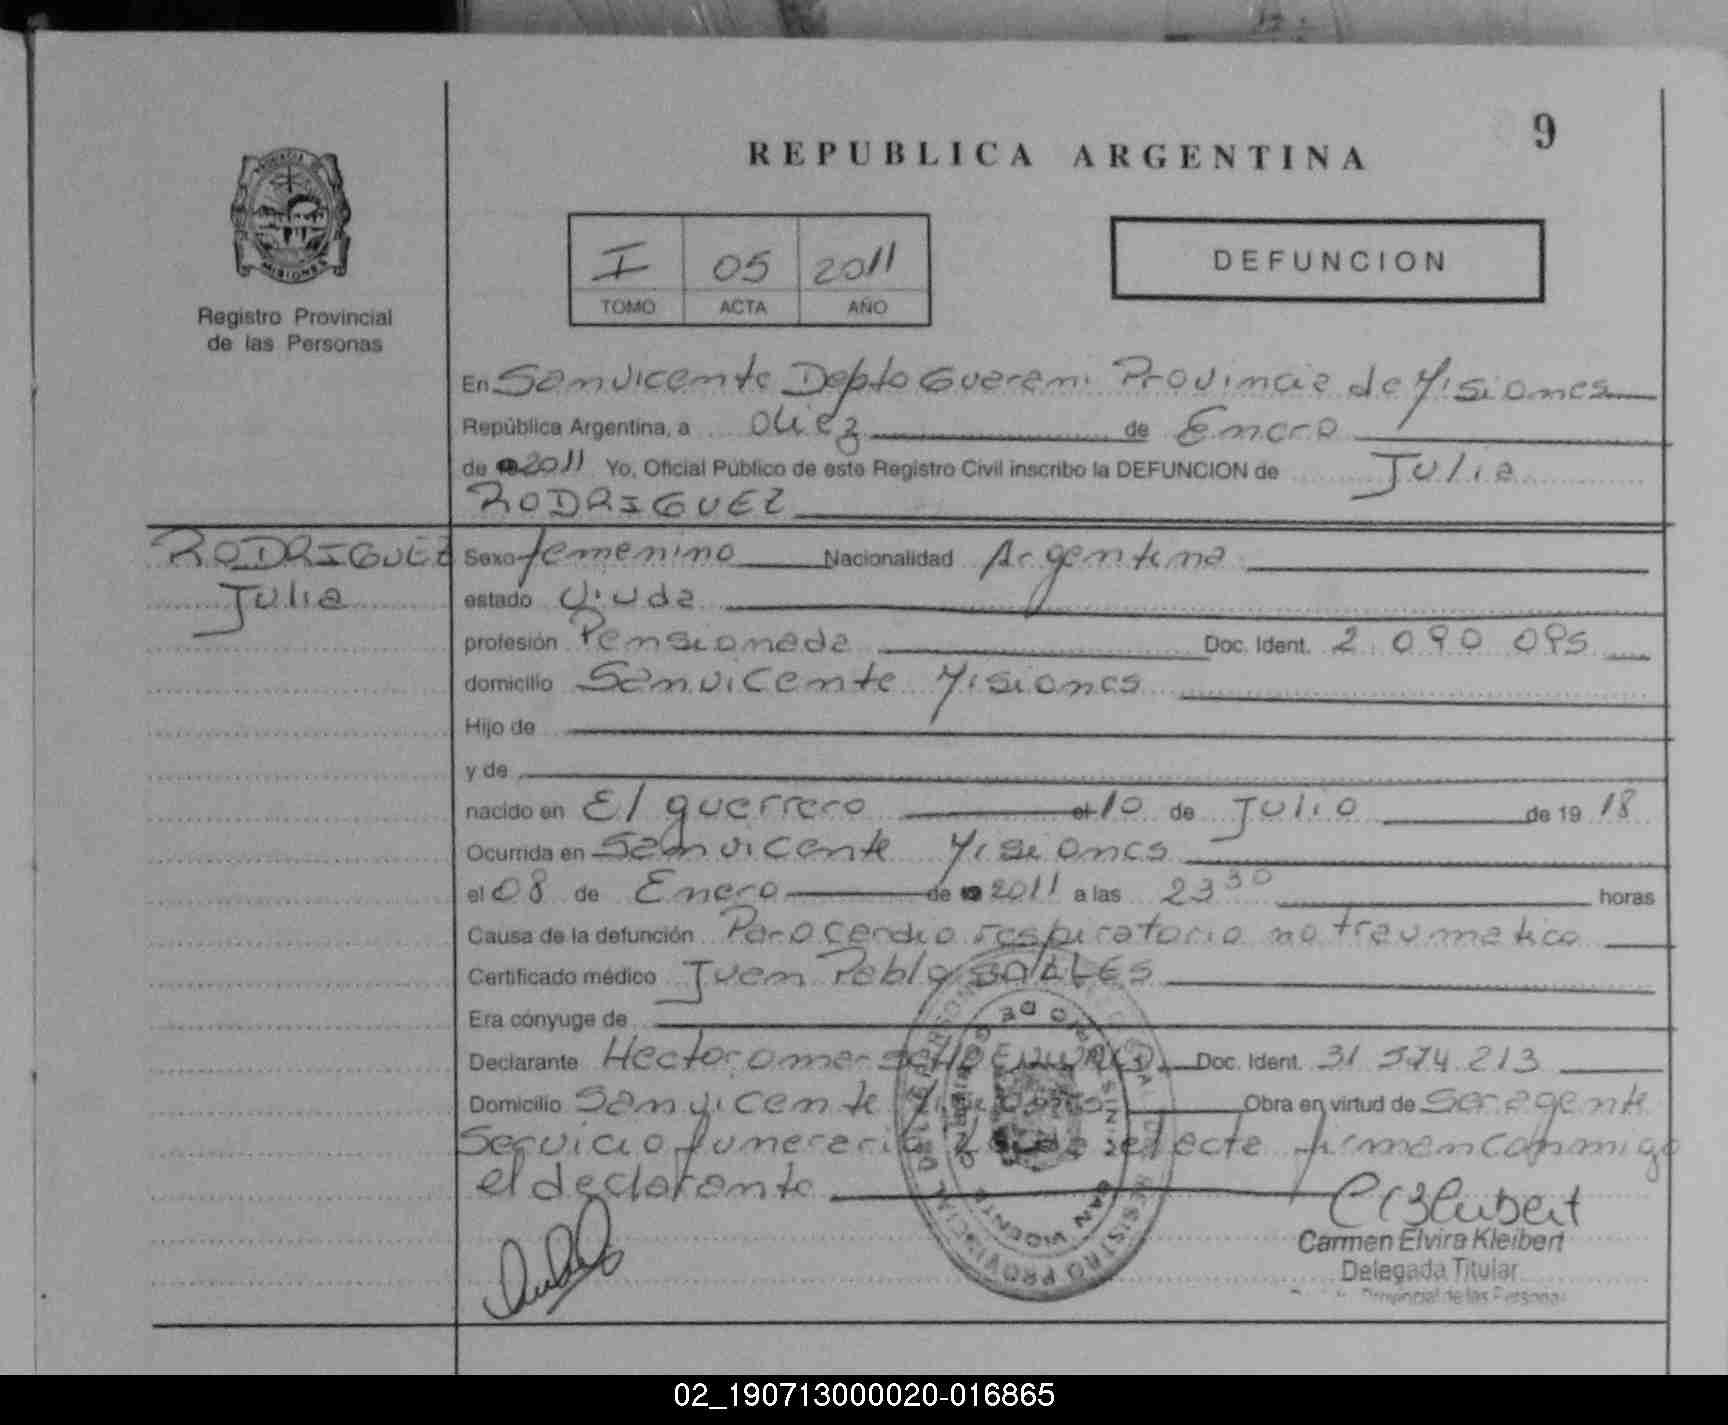 9
REPUBLICA ARGENTINA
I 05 2011
TOMO ACTA AÑO
DEFUNCION
MISIONES
Registro Provincial
de las Personas
En San Vicente Depto Guarani Provincia de Misiones
República Argentina, a diez de Enero
de 2011 Yo, Oficial Público de este Registro Civil inscribo la DEFUNCION de Julia
RODRIGUEZ
RODRIGUEZ
Julia
Sexo femenino Nacionalidad Argentina
estado Viuda
profesión Pensionada Doc. Ident. 2.090.095
domicilio San Vicente Misiones
Hijo de
y de
nacido en El guerrero el 10 de Julio de 19 18
Ocurrida en San Vicente Misiones
el 08 de Enero de 2011 a las 23 30 horas
Causa de la defunción Paro cardio respiratorio no traumatico
Certificado médico Juan Pablo
Era cónyuge de
Declarante Hector omar Doc. Ident. 31.574.213
Domicilio San Vicente Misiones Obra en virtud de Ser agente
Servicio funerario Leida el acta firman conmigo
el declarante
REGISTRO PROVINCIAL DE LAS PERSONAS
SAN VICENTE
Carmen Elvira Kleibert
Delegada Titular
Provincial de las Personas
02_190713000020-016865